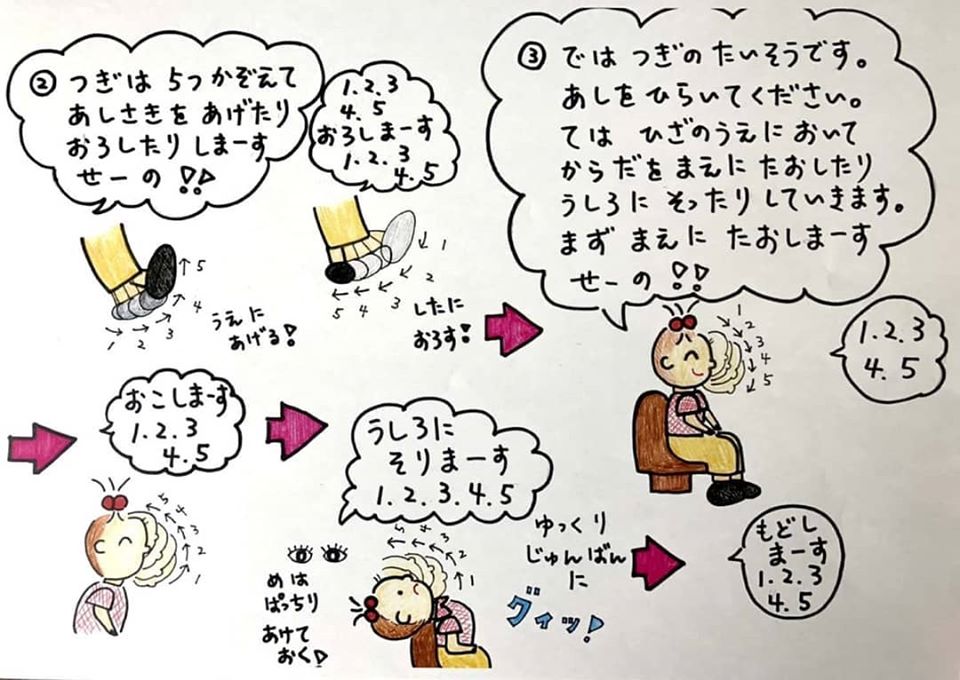 ② つぎは 5つかぞえて
あしさきを あげたり
おろしたり しまーす
せーの !!
1.2.3
4.5
おろしまーす
1.2.3
4.5
1
2
3
4
5
うえに
あげる!
1
2
3
4
5
したに
おろす!
③ では つぎの たいそうです。
あしを ひらいてください。
ては ひざのうえに おいて
からだを まえに たおしたり
うしろに そったり していきます。
まず まえに たおしまーす
せーの !!
1
2
3
4
5
1.2.3
4.5
おこしまーす
1.2.3
4.5
1
2
3
4
5
うしろに
そりまーす
1.2.3.4.5
1
2
3
4
5
めは
ぱっちり
あけて
おく!
ゆっくり
じゅんばん
に
グィッ!
もどし
まーす
1.2.3
4.5